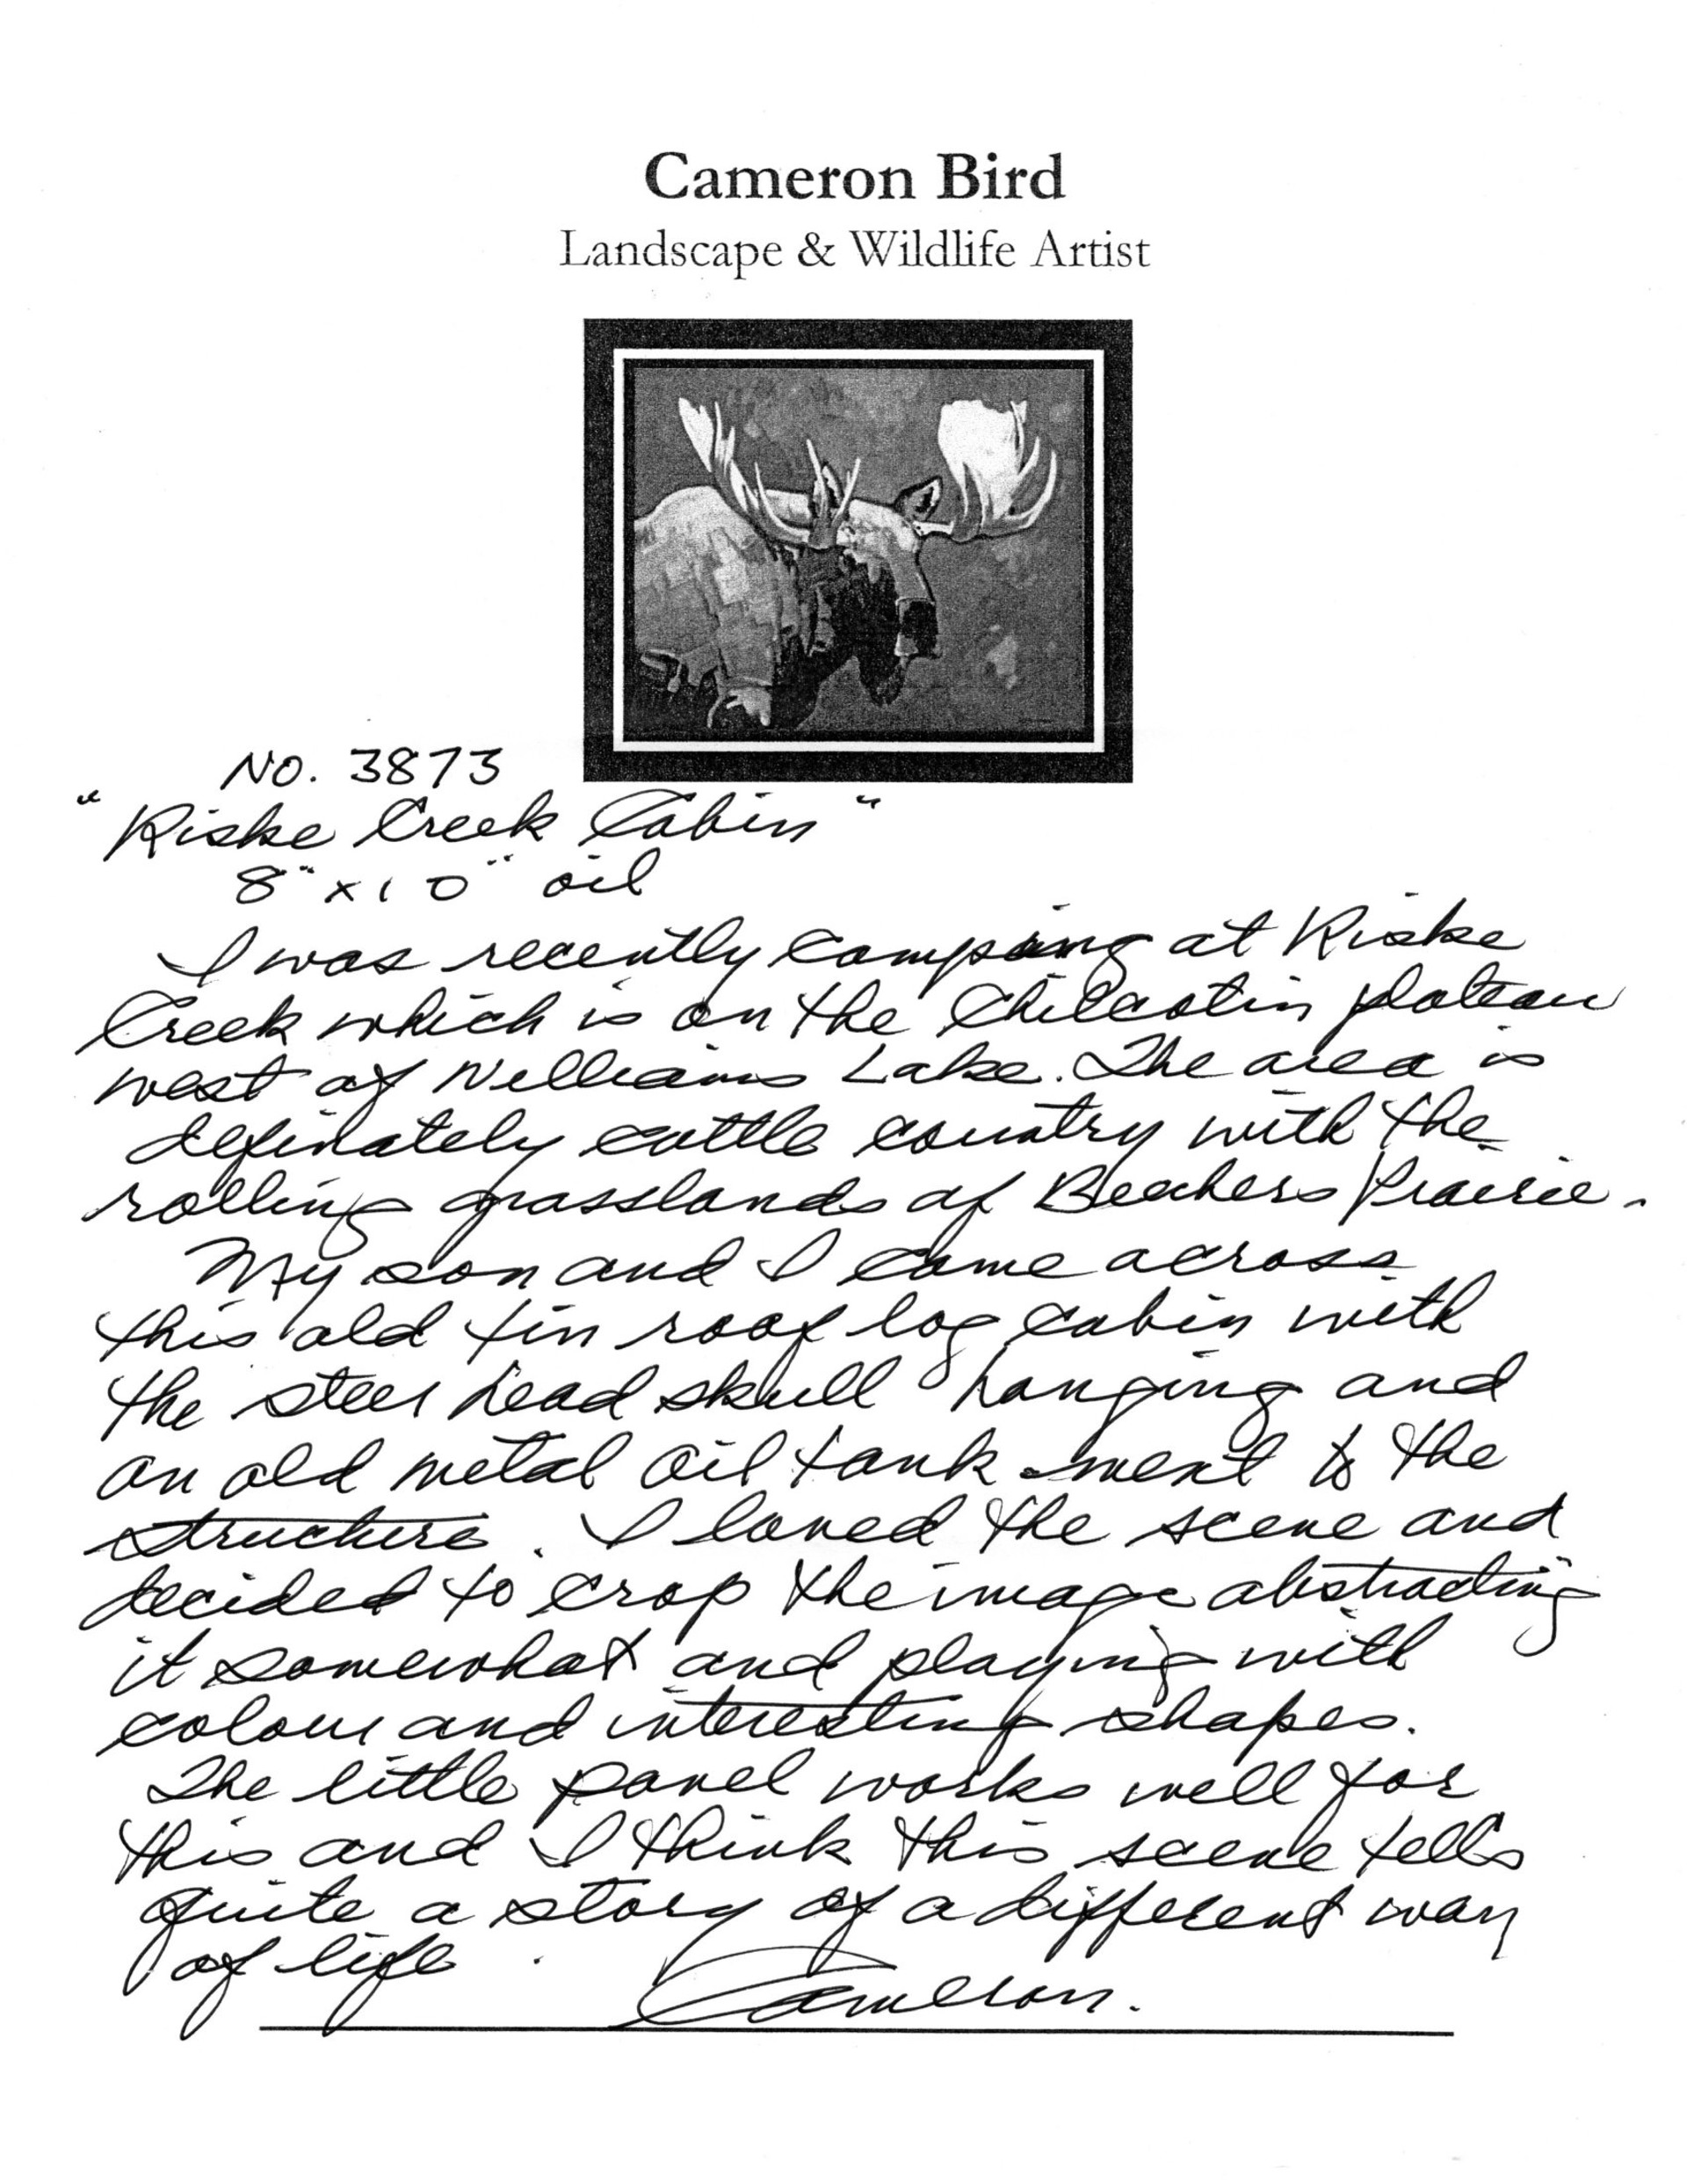 Cameron Bird
Landscape & Wildlife Artist
No. 3873
"Riske Creek Cabin"
8" x 10" oil
I was recently camping at Riske
Creek which is on the Chilcotin plateau
west of Williams Lake. The area is
definately cattle country with the
rolling grasslands of Beechers Prairie.
My son and I came across
this old tin roof log cabin with
the steer head skull hanging and
an old metal oil tank next to the
structure. I loved the scene and
decided to crop the image abstracting
it somewhat and playing with
colour and interesting shapes.
The little panel works well for
this and I think this scene tells
quite a story of a different way
of life.
Cameron.